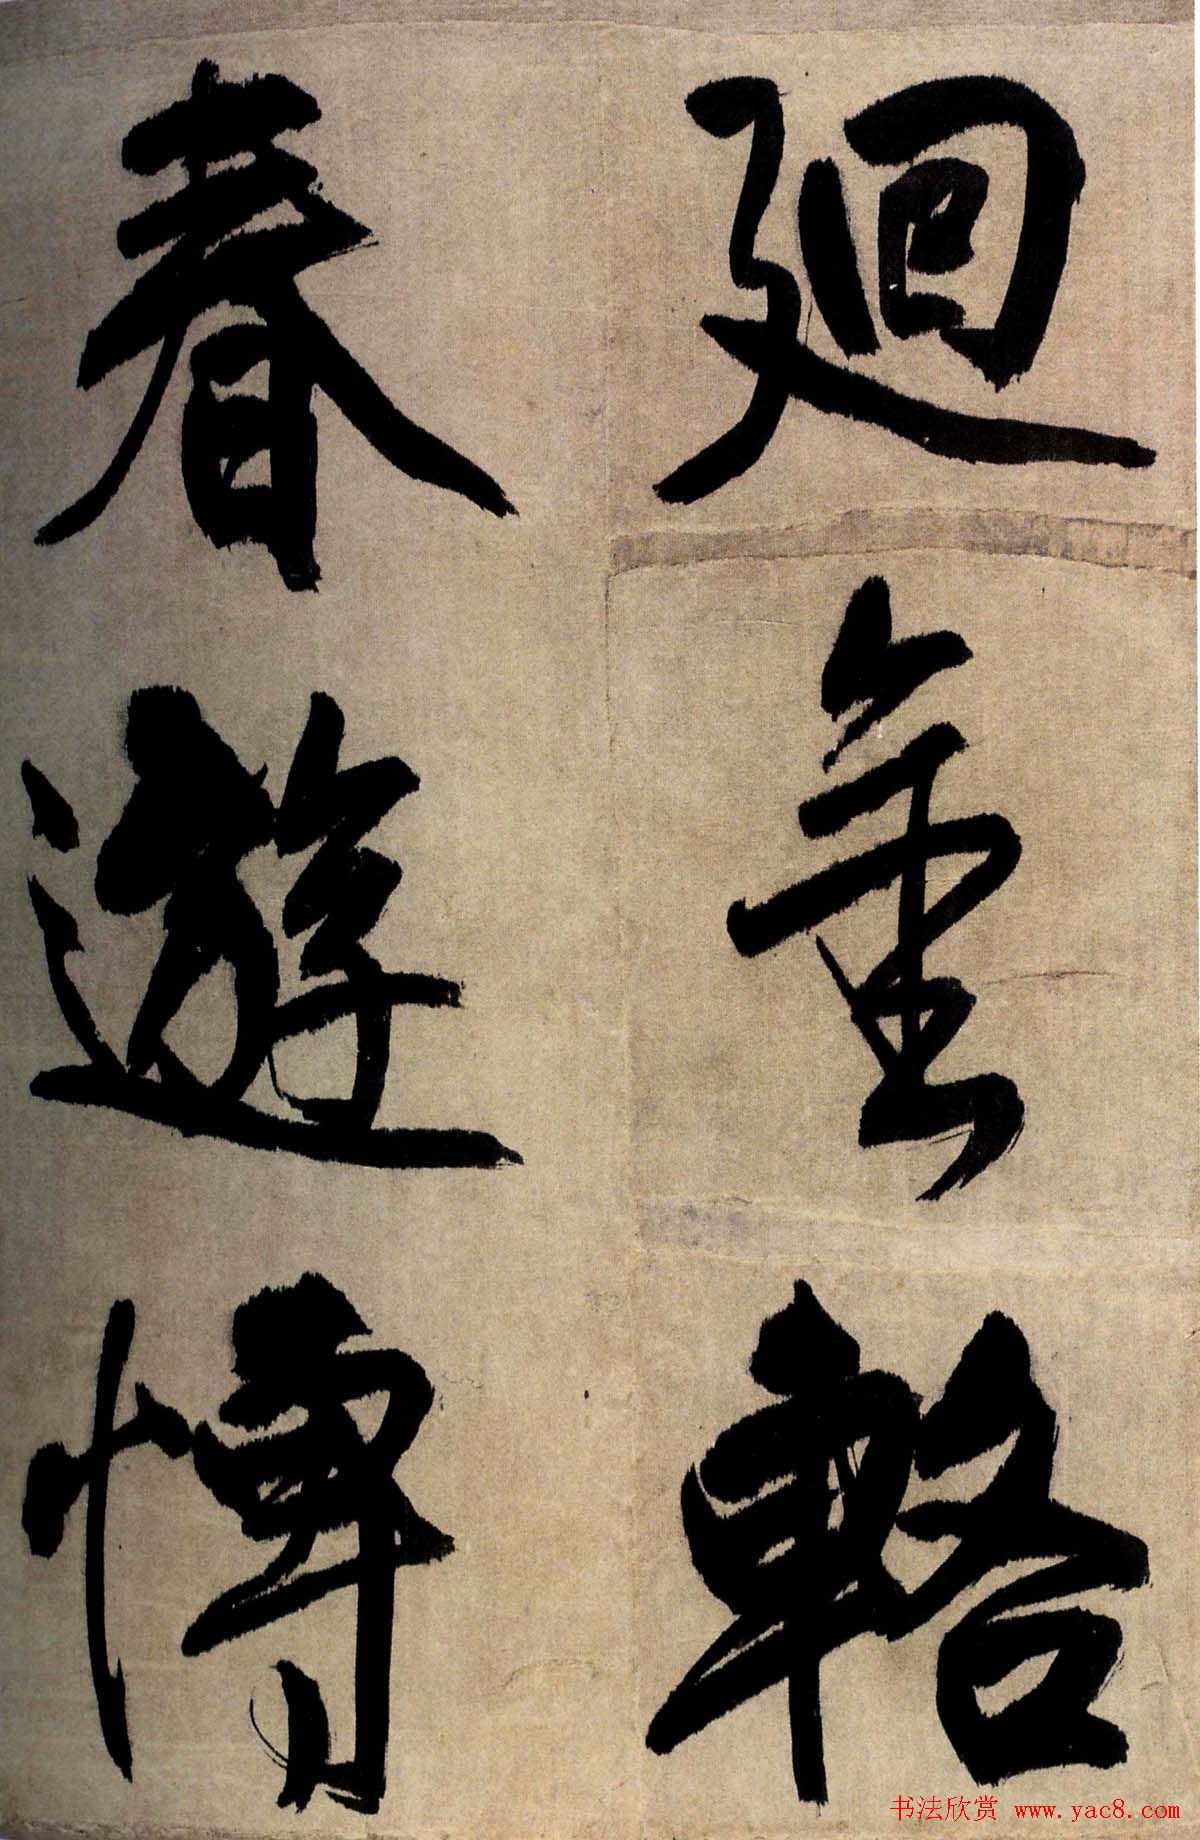 廻金輅
春遊愽
书法欣赏 www.yac8.com